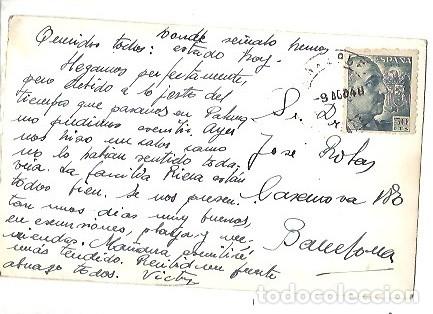 Donde señalo hemos
Queridos todos: estado hoy.
Llegamos perfectamente,
pero debido a lo justo del
tiempo que pasamos en Palma
no pudimos escribir. Ayer
nos hizo un calor como
no lo habian sentido toda-
via. La familia Riera están
todos bien. Se nos presen-
tan unos días muy buenos,
en excursiones, playa y me-
riendas. Mañana escribiré
más tendido. Recibid un fuerte
abrazo todos.
Sr. D.
José Ribas
Casanova 180
Barcelona
ESPAÑA
50
CTS
-9 AGO 48
todocoleccion.net